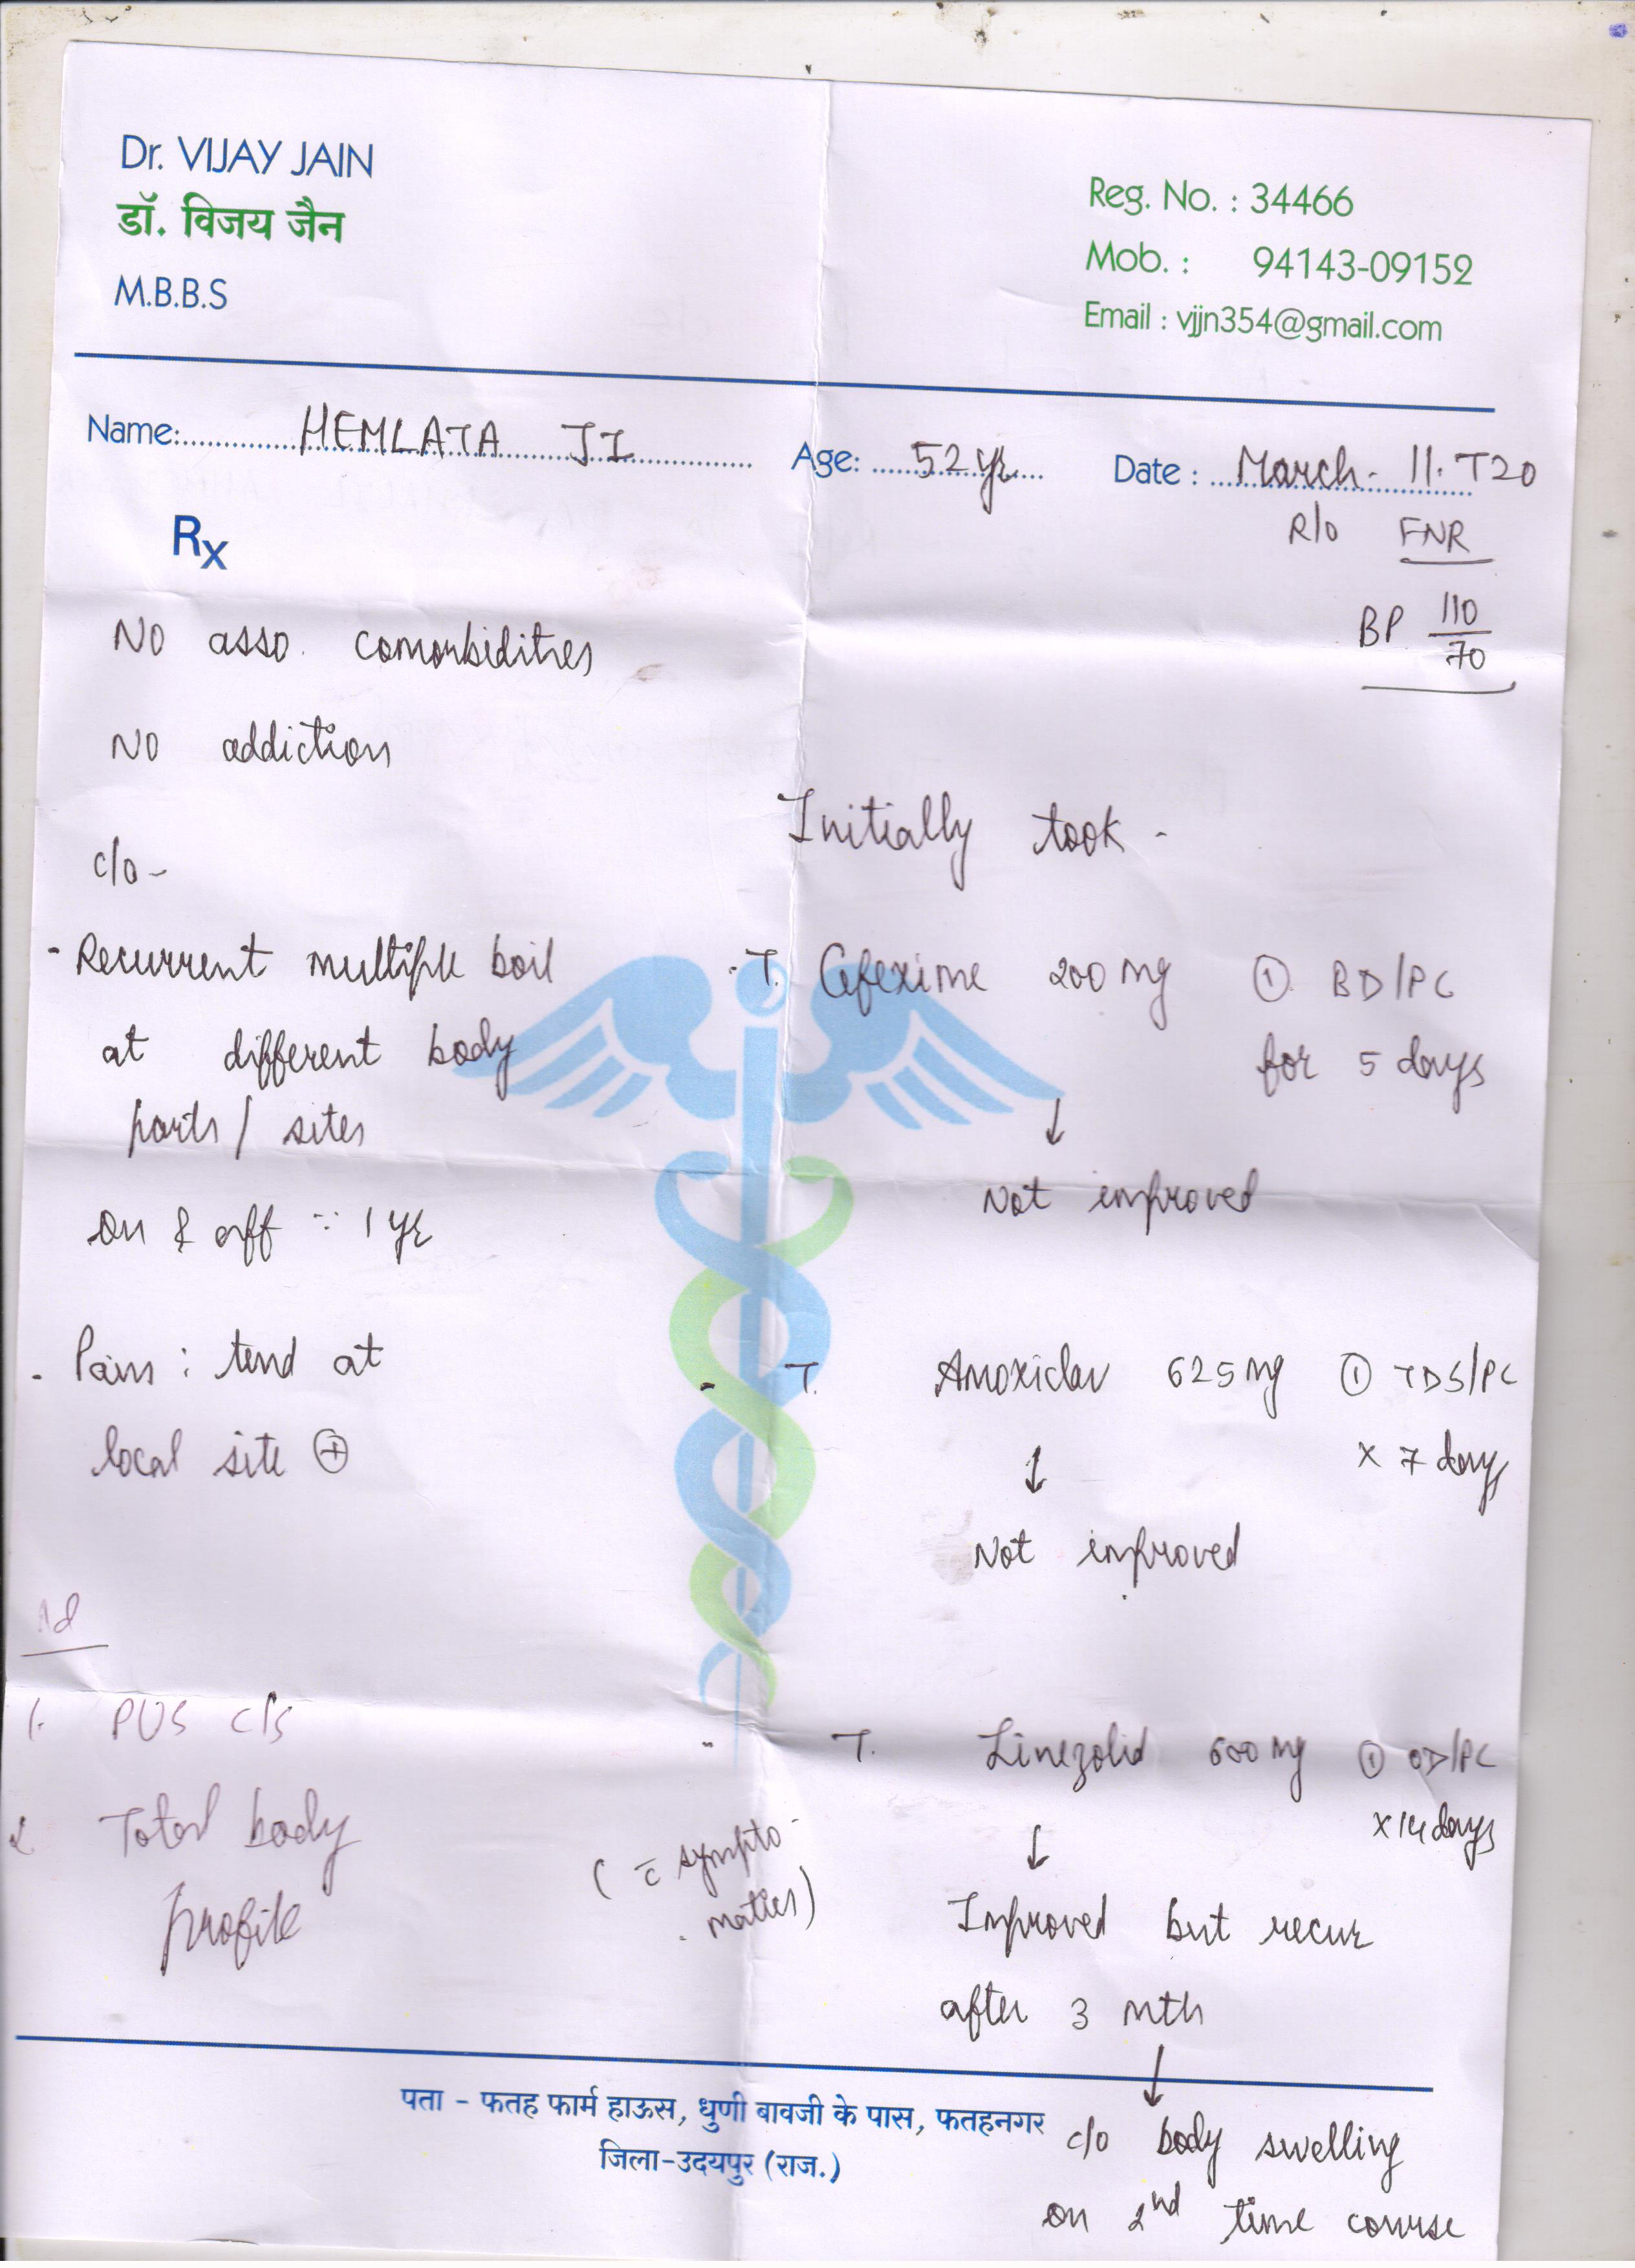 Dr. VIJAY JAIN
डॉ. विजय जैन
M.B.B.S
Reg. No. : 34466
Mob. : 94143-09152
Email : vjjn354@gmail.com
Name: HEMLATA JI Age: 52 yr Date : March - 11. T20
R/o FNR
Rx
BP 110/70
No asso. comorbidities
No addiction
c/o -
- Recurrent multiple boil
at different body
parts / sites
on & off ∵ 1 yr
- Pain : tend at
local site ⊕
Ad
1. PUS c/s
2 Total body
profile
Initially took -
- T. Cefexime 200 mg ① BD/PC
for 5 days
↓
Not improved
- T. Amoxiclav 625 mg ① TDS/PC
x 7 days
↓
Not improved
- T. Linezolid 600 mg ① OD/PC
x 14 days
↓
(c̄ sympto-
matics)
Improved but recur
after 3 mth
↓
c/o body swelling
on 2nd time course
पता - फतह फार्म हाऊस, धुणी बावजी के पास, फतहनगर
जिला-उदयपुर (राज.)